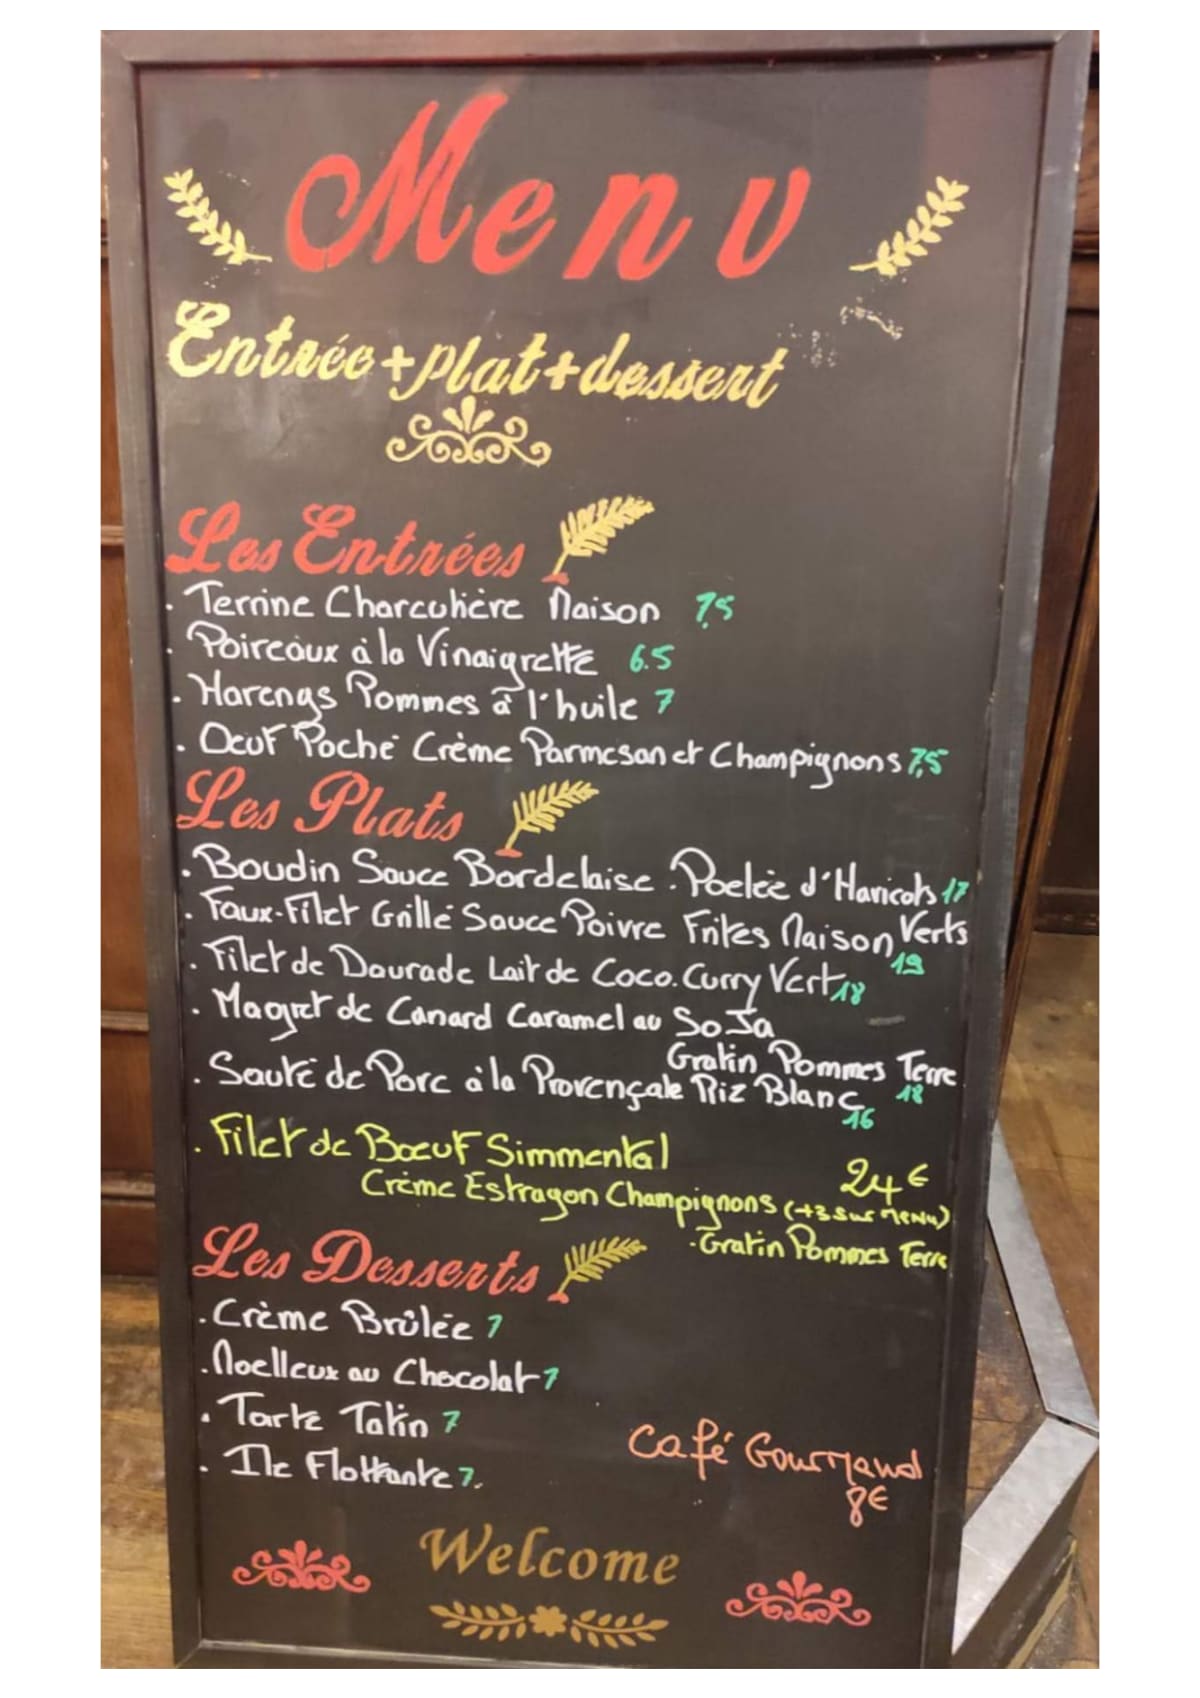 Menu
Entrée+plat+dessert
Les Entrées
. Terrine Charcutière Maison 7,5
. Poireaux à la Vinaigrette 6.5
. Harengs Pommes à l'huile 7
. Oeuf Poché Crème Parmesan et Champignons 7,5
Les Plats
. Boudin Sauce Bordelaise . Poelée d'Haricots 17
Verts
. Faux-Filet Grillé Sauce Poivre Frites Maison
19
. Filet de Daurade Lait de Coco. Curry Vert 18
. Magret de Canard Caramel au SoJa
Gratin Pommes Terre
18
. Sauté de Porc à la Provençale Riz Blanc
16
. Filet de Boeuf Simmental
24€
Crème Estragon Champignons (+3 sur MENU)
. Gratin Pommes Terre
Les Desserts
. Crème Brûlée 7
. Moelleux au Chocolat 7
. Tarte Tatin 7
. Ile Flottante 7.
Café Gourmand
8€
Welcome